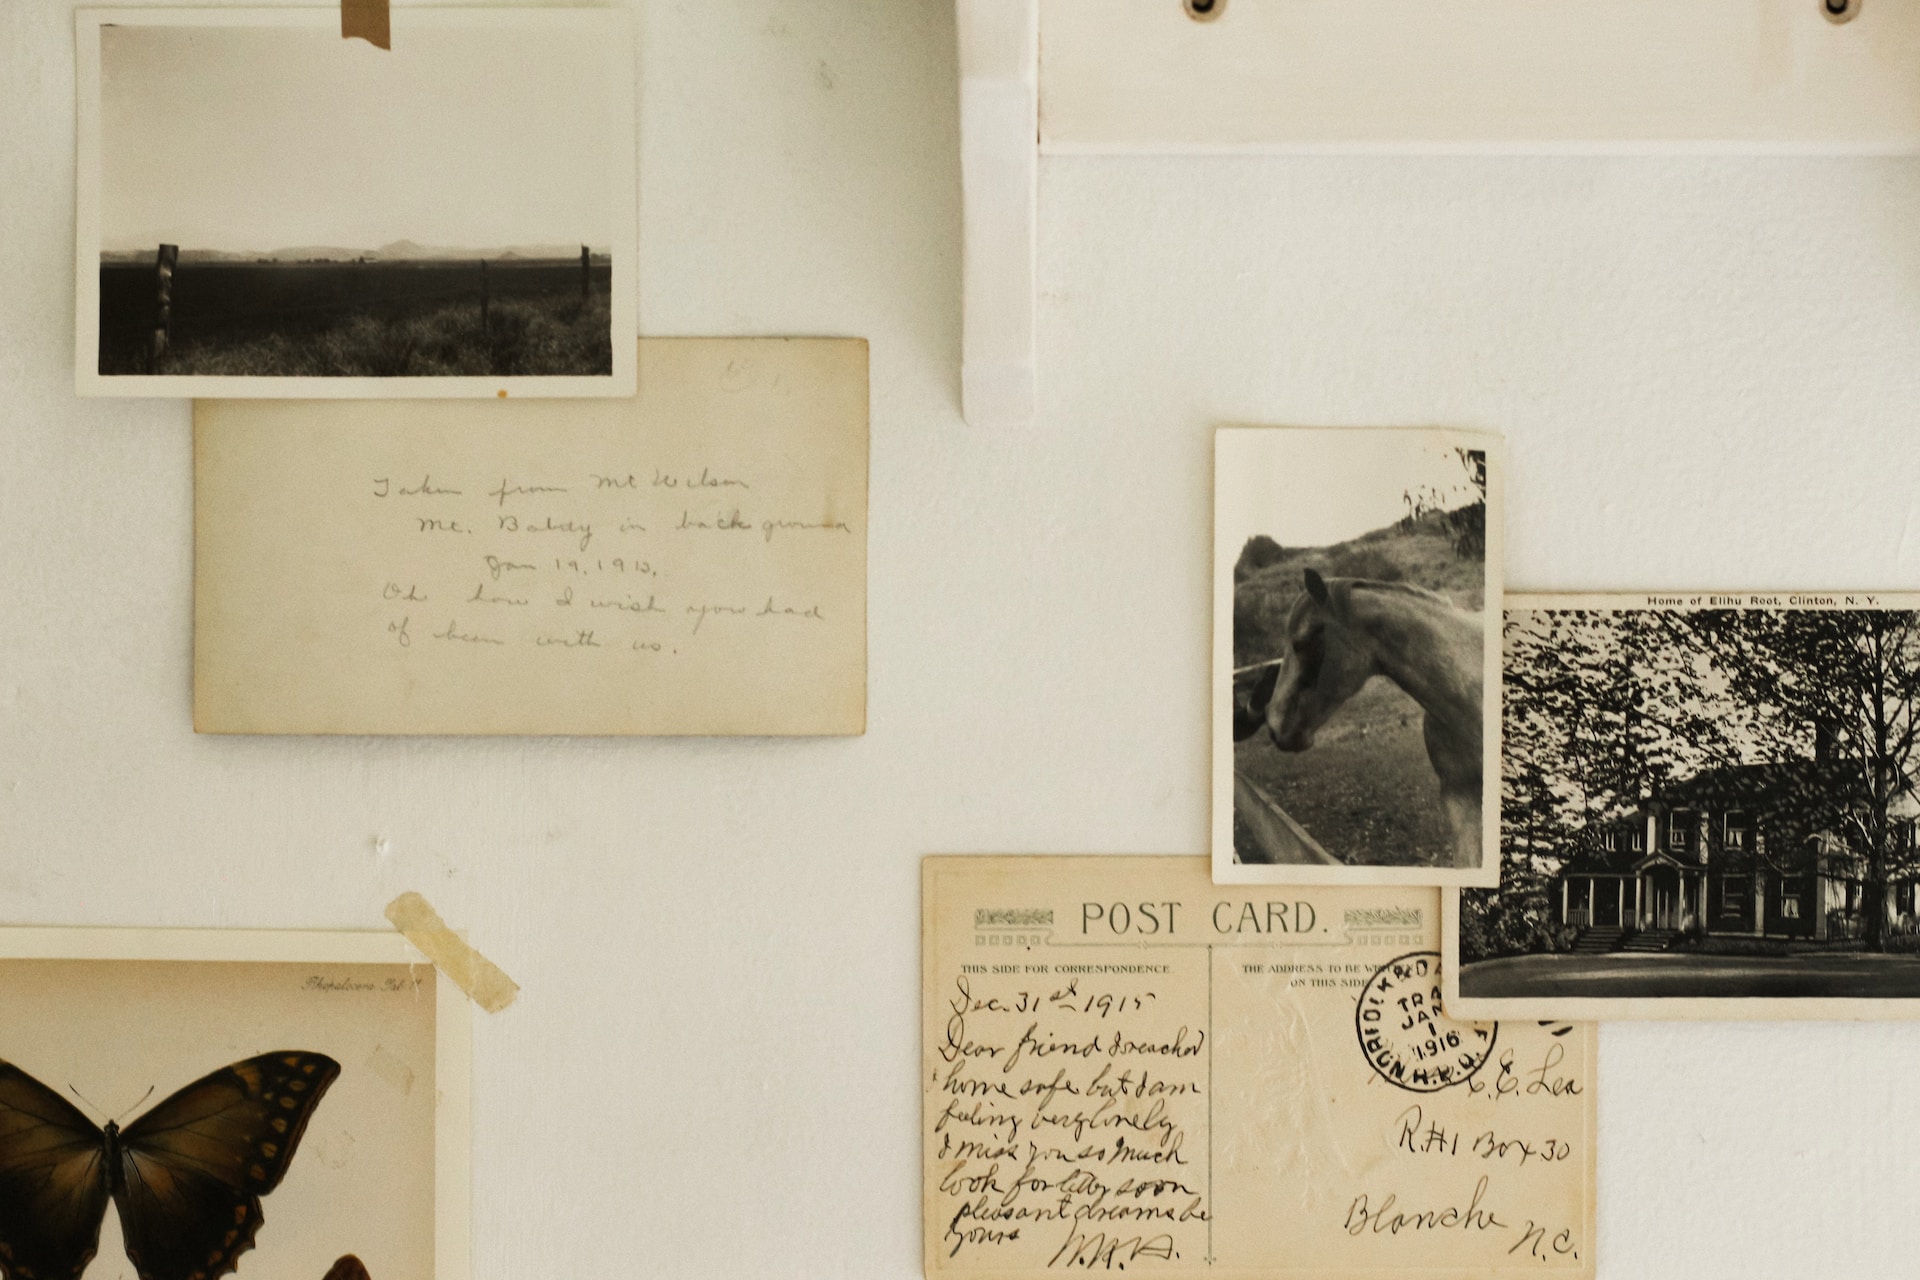 Taken from Mt Wilson
Mt. Baldy in back ground
Jan 19, 1913.
Oh how I wish you had
of been with us.
Home of Elihu Root, Clinton, N. Y.
POST CARD.
THIS SIDE FOR CORRESPONDENCE
THE ADDRESS TO BE
ON THIS SIDE
Dec. 31st 1915
Dear friend I reached
home safe but I am
feeling very lonely
I miss you so much
look for letter soon
pleasant dreams be
yours
JAN
1
1916
C.E. Lea
R.#1 Box 30
Blanche N.C.